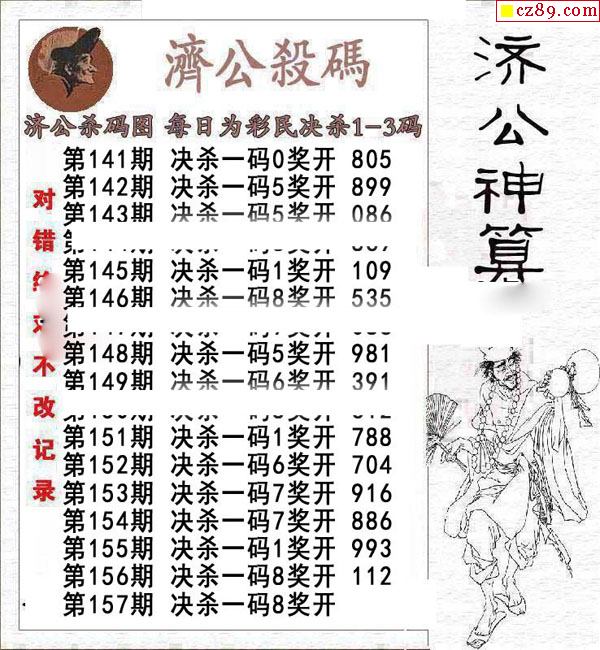 cz89.com
濟公殺碼
济公杀码图 每日为彩民决杀1-3码
第141期 决杀一码0奖开 805
第142期 决杀一码5奖开 899
第143期 决杀一码5奖开 086
第145期 决杀一码1奖开 109
第146期 决杀一码8奖开 535
第148期 决杀一码5奖开 981
第149期 决杀一码6奖开 391
第151期 决杀一码1奖开 788
第152期 决杀一码6奖开 704
第153期 决杀一码7奖开 916
第154期 决杀一码7奖开 886
第155期 决杀一码1奖开 993
第156期 决杀一码8奖开 112
第157期 决杀一码8奖开
对错 不改记录
济公神算